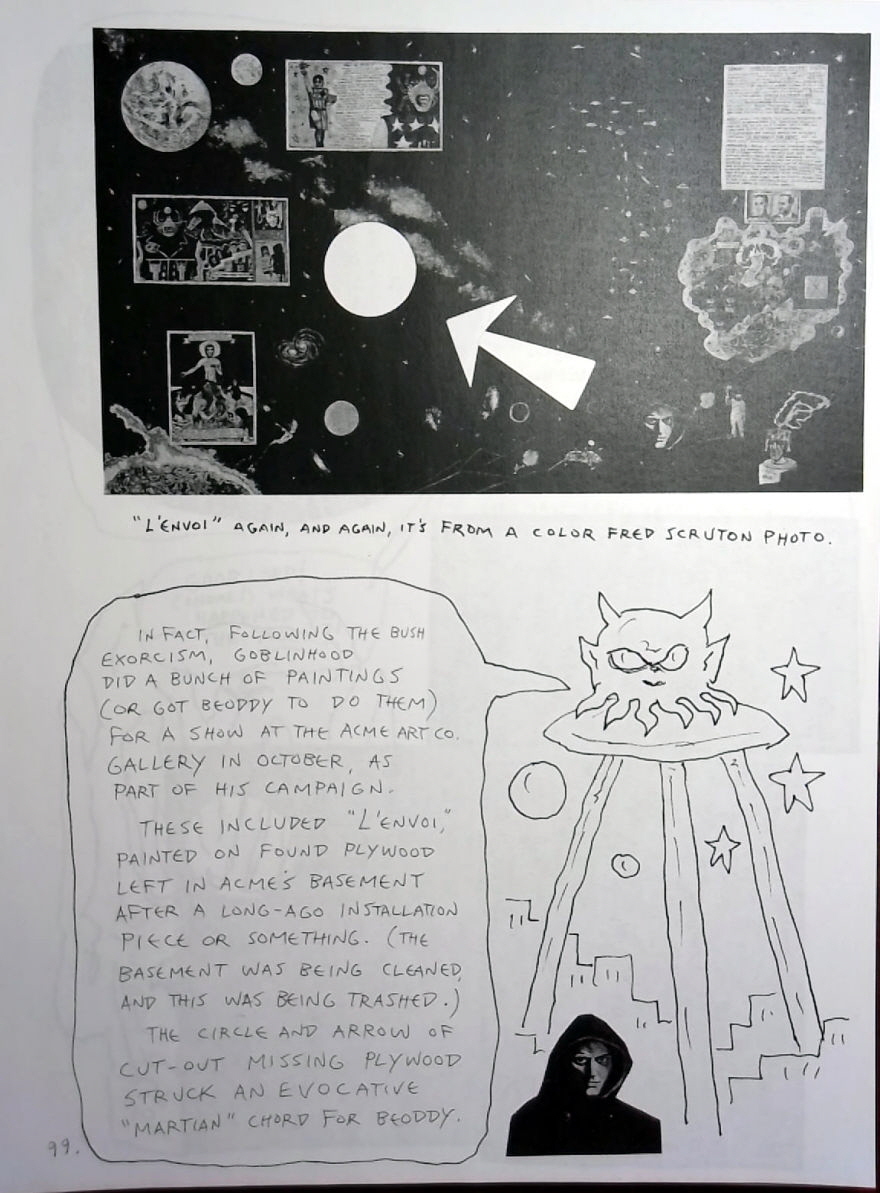 "L'ENVOI" AGAIN, AND AGAIN, IT'S FROM A COLOR FRED SCRUTON PHOTO.
IN FACT, FOLLOWING THE BUSH
EXORCISM, GOBLINHOOD
DID A BUNCH OF PAINTINGS
(OR GOT BEODDY TO DO THEM)
FOR A SHOW AT THE ACME ART CO.
GALLERY IN OCTOBER, AS
PART OF HIS CAMPAIGN.
THESE INCLUDED "L'ENVOI,"
PAINTED ON FOUND PLYWOOD
LEFT IN ACME'S BASEMENT
AFTER A LONG-AGO INSTALLATION
PIECE OR SOMETHING. (THE
BASEMENT WAS BEING CLEANED,
AND THIS WAS BEING TRASHED.)
THE CIRCLE AND ARROW OF
CUT-OUT MISSING PLYWOOD
STRUCK AN EVOCATIVE
"MARTIAN" CHORD FOR BEODDY.
99.